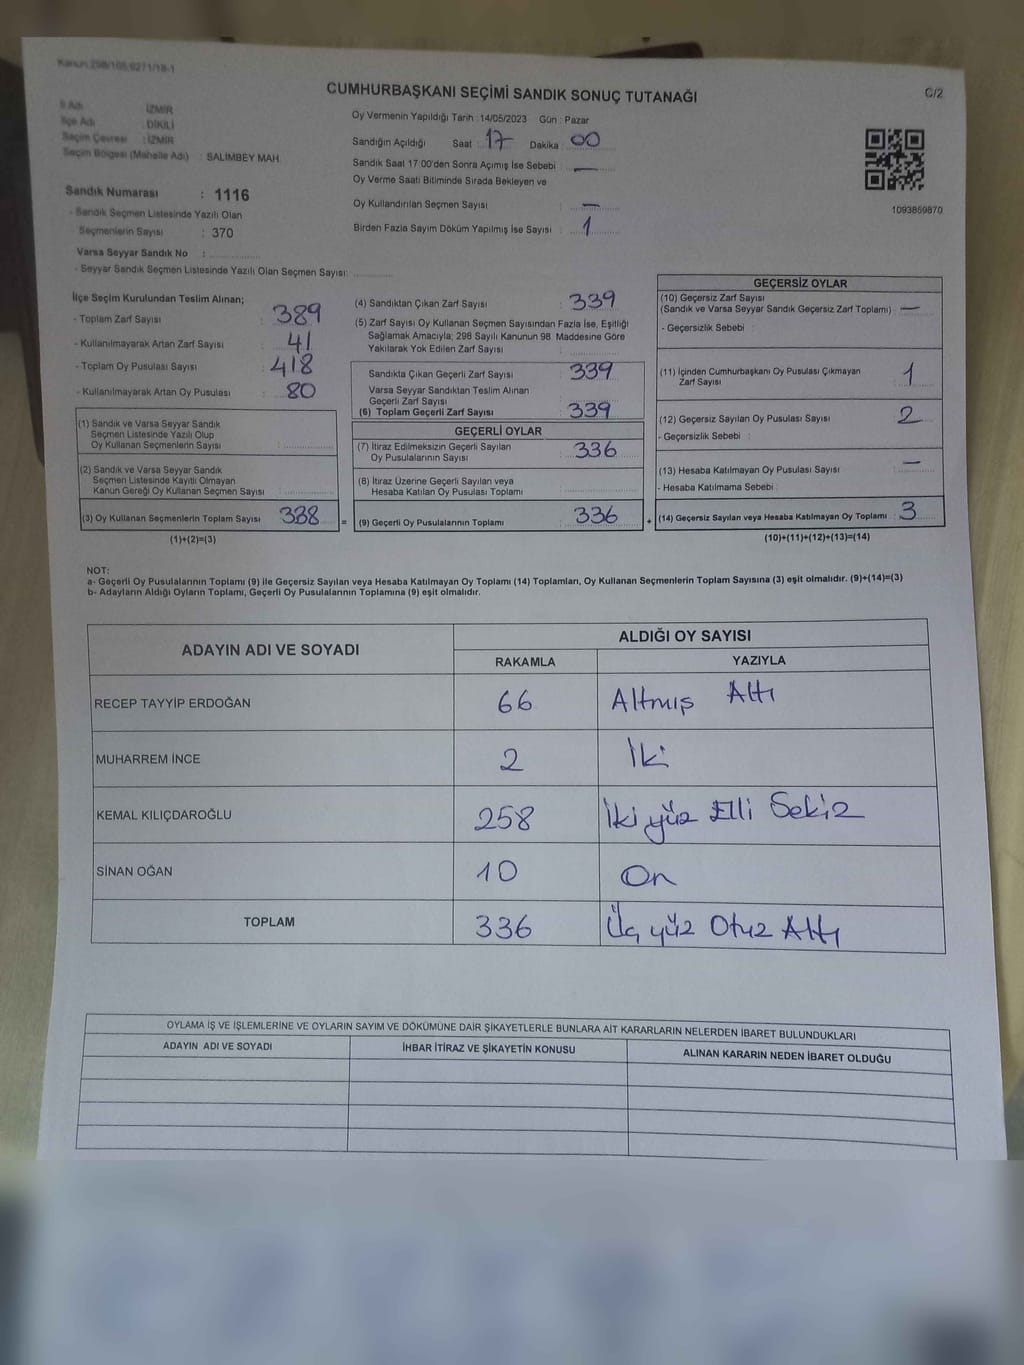 Kanun 298/105,6271/18-1
CUMHURBAŞKANI SEÇİMİ SANDIK SONUÇ TUTANAĞI
C/2
İl Adı : İZMİR
İlçe Adı : DİKİLİ
Seçim Çevresi : İZMİR
Seçim Bölgesi (Mahalle Adı) : SALIMBEY MAH.
Sandık Numarası : 1116
- Sandık Seçmen Listesinde Yazılı Olan
Seçmenlerin Sayısı : 370
Varsa Seyyar Sandık No :
- Seyyar Sandık Seçmen Listesinde Yazılı Olan Seçmen Sayısı:
Oy Vermenin Yapıldığı Tarih : 14/05/2023 Gün : Pazar
Sandığın Açıldığı Saat : 17 Dakika : 00
Sandık Saat 17:00'den Sonra Açımış İse Sebebi : —
Oy Verme Saati Bitiminde Sırada Bekleyen ve
Oy Kullandırılan Seçmen Sayısı : —
Birden Fazla Sayım Döküm Yapılmış İse Sayısı : 1
1093859870
İlçe Seçim Kurulundan Teslim Alınan;
- Toplam Zarf Sayısı : 389
- Kullanılmayarak Artan Zarf Sayısı : 41
- Toplam Oy Pusulası Sayısı : 418
- Kullanılmayarak Artan Oy Pusulası : 80
(1) Sandık ve Varsa Seyyar Sandık
Seçmen Listesinde Yazılı Olup
Oy Kullanan Seçmenlerin Sayısı :
(2) Sandık ve Varsa Seyyar Sandık
Seçmen Listesinde Kayıtlı Olmayan
Kanun Gereği Oy Kullanan Seçmen Sayısı :
(3) Oy Kullanan Seçmenlerin Toplam Sayısı : 338 =
(1)+(2)=(3)
(4) Sandıktan Çıkan Zarf Sayısı : 339
(5) Zarf Sayısı Oy Kullanan Seçmen Sayısından Fazla İse, Eşitliği
Sağlamak Amacıyla; 298 Sayılı Kanunun 98. Maddesine Göre
Yakılarak Yok Edilen Zarf Sayısı :
Sandıkta Çıkan Geçerli Zarf Sayısı : 339
Varsa Seyyar Sandıktan Teslim Alınan
Geçerli Zarf Sayısı :
(6) Toplam Geçerli Zarf Sayısı : 339
GEÇERLİ OYLAR
(7) İtiraz Edilmeksizin Geçerli Sayılan
Oy Pusulalarının Sayısı : 336
(8) İtiraz Üzerine Geçerli Sayılan veya
Hesaba Katılan Oy Pusulası Toplamı :
(9) Geçerli Oy Pusulalarının Toplamı : 336 +
GEÇERSİZ OYLAR
(10) Geçersiz Zarf Sayısı
(Sandık ve Varsa Seyyar Sandık Geçersiz Zarf Toplamı) : —
- Geçersizlik Sebebi :
(11) İçinden Cumhurbaşkanı Oy Pusulası Çıkmayan
Zarf Sayısı : 1
(12) Geçersiz Sayılan Oy Pusulası Sayısı : 2
- Geçersizlik Sebebi :
(13) Hesaba Katılmayan Oy Pusulası Sayısı : —
- Hesaba Katılmama Sebebi :
(14) Geçersiz Sayılan veya Hesaba Katılmayan Oy Toplamı : 3
(10)+(11)+(12)+(13)=(14)
NOT:
a- Geçerli Oy Pusulalarının Toplamı (9) ile Geçersiz Sayılan veya Hesaba Katılmayan Oy Toplamı (14) Toplamları, Oy Kullanan Seçmenlerin Toplam Sayısına (3) eşit olmalıdır. (9)+(14)=(3)
b- Adayların Aldığı Oyların Toplamı, Geçerli Oy Pusulalarının Toplamına (9) eşit olmalıdır.
ADAYIN ADI VE SOYADI ALDIĞI OY SAYISI
RAKAMLA YAZIYLA
RECEP TAYYİP ERDOĞAN 66 Altmış Altı
MUHARREM İNCE 2 İki
KEMAL KILIÇDAROĞLU 258 İki yüz Elli Sekiz
SİNAN OĞAN 10 On
TOPLAM 336 Üç yüz Otuz Altı
OYLAMA İŞ VE İŞLEMLERİNE VE OYLARIN SAYIM VE DÖKÜMÜNE DAİR ŞİKAYETLERLE BUNLARA AİT KARARLARIN NELERDEN İBARET BULUNDUKLARI
ADAYIN ADI VE SOYADI İHBAR İTİRAZ VE ŞİKAYETİN KONUSU ALINAN KARARIN NEDEN İBARET OLDUĞU